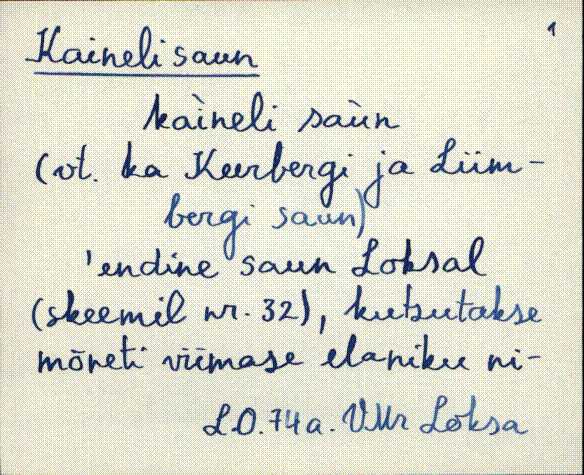 1
Kaineli saun
kàineli saùn
(vt. ka Keerbergi ja Liim-
bergi saun)
'endine saun Loksal
(skeemil nr. 32), kutsutakse
mõneti viimase elaniku ni-
L.O. 74a. VMr Loksa